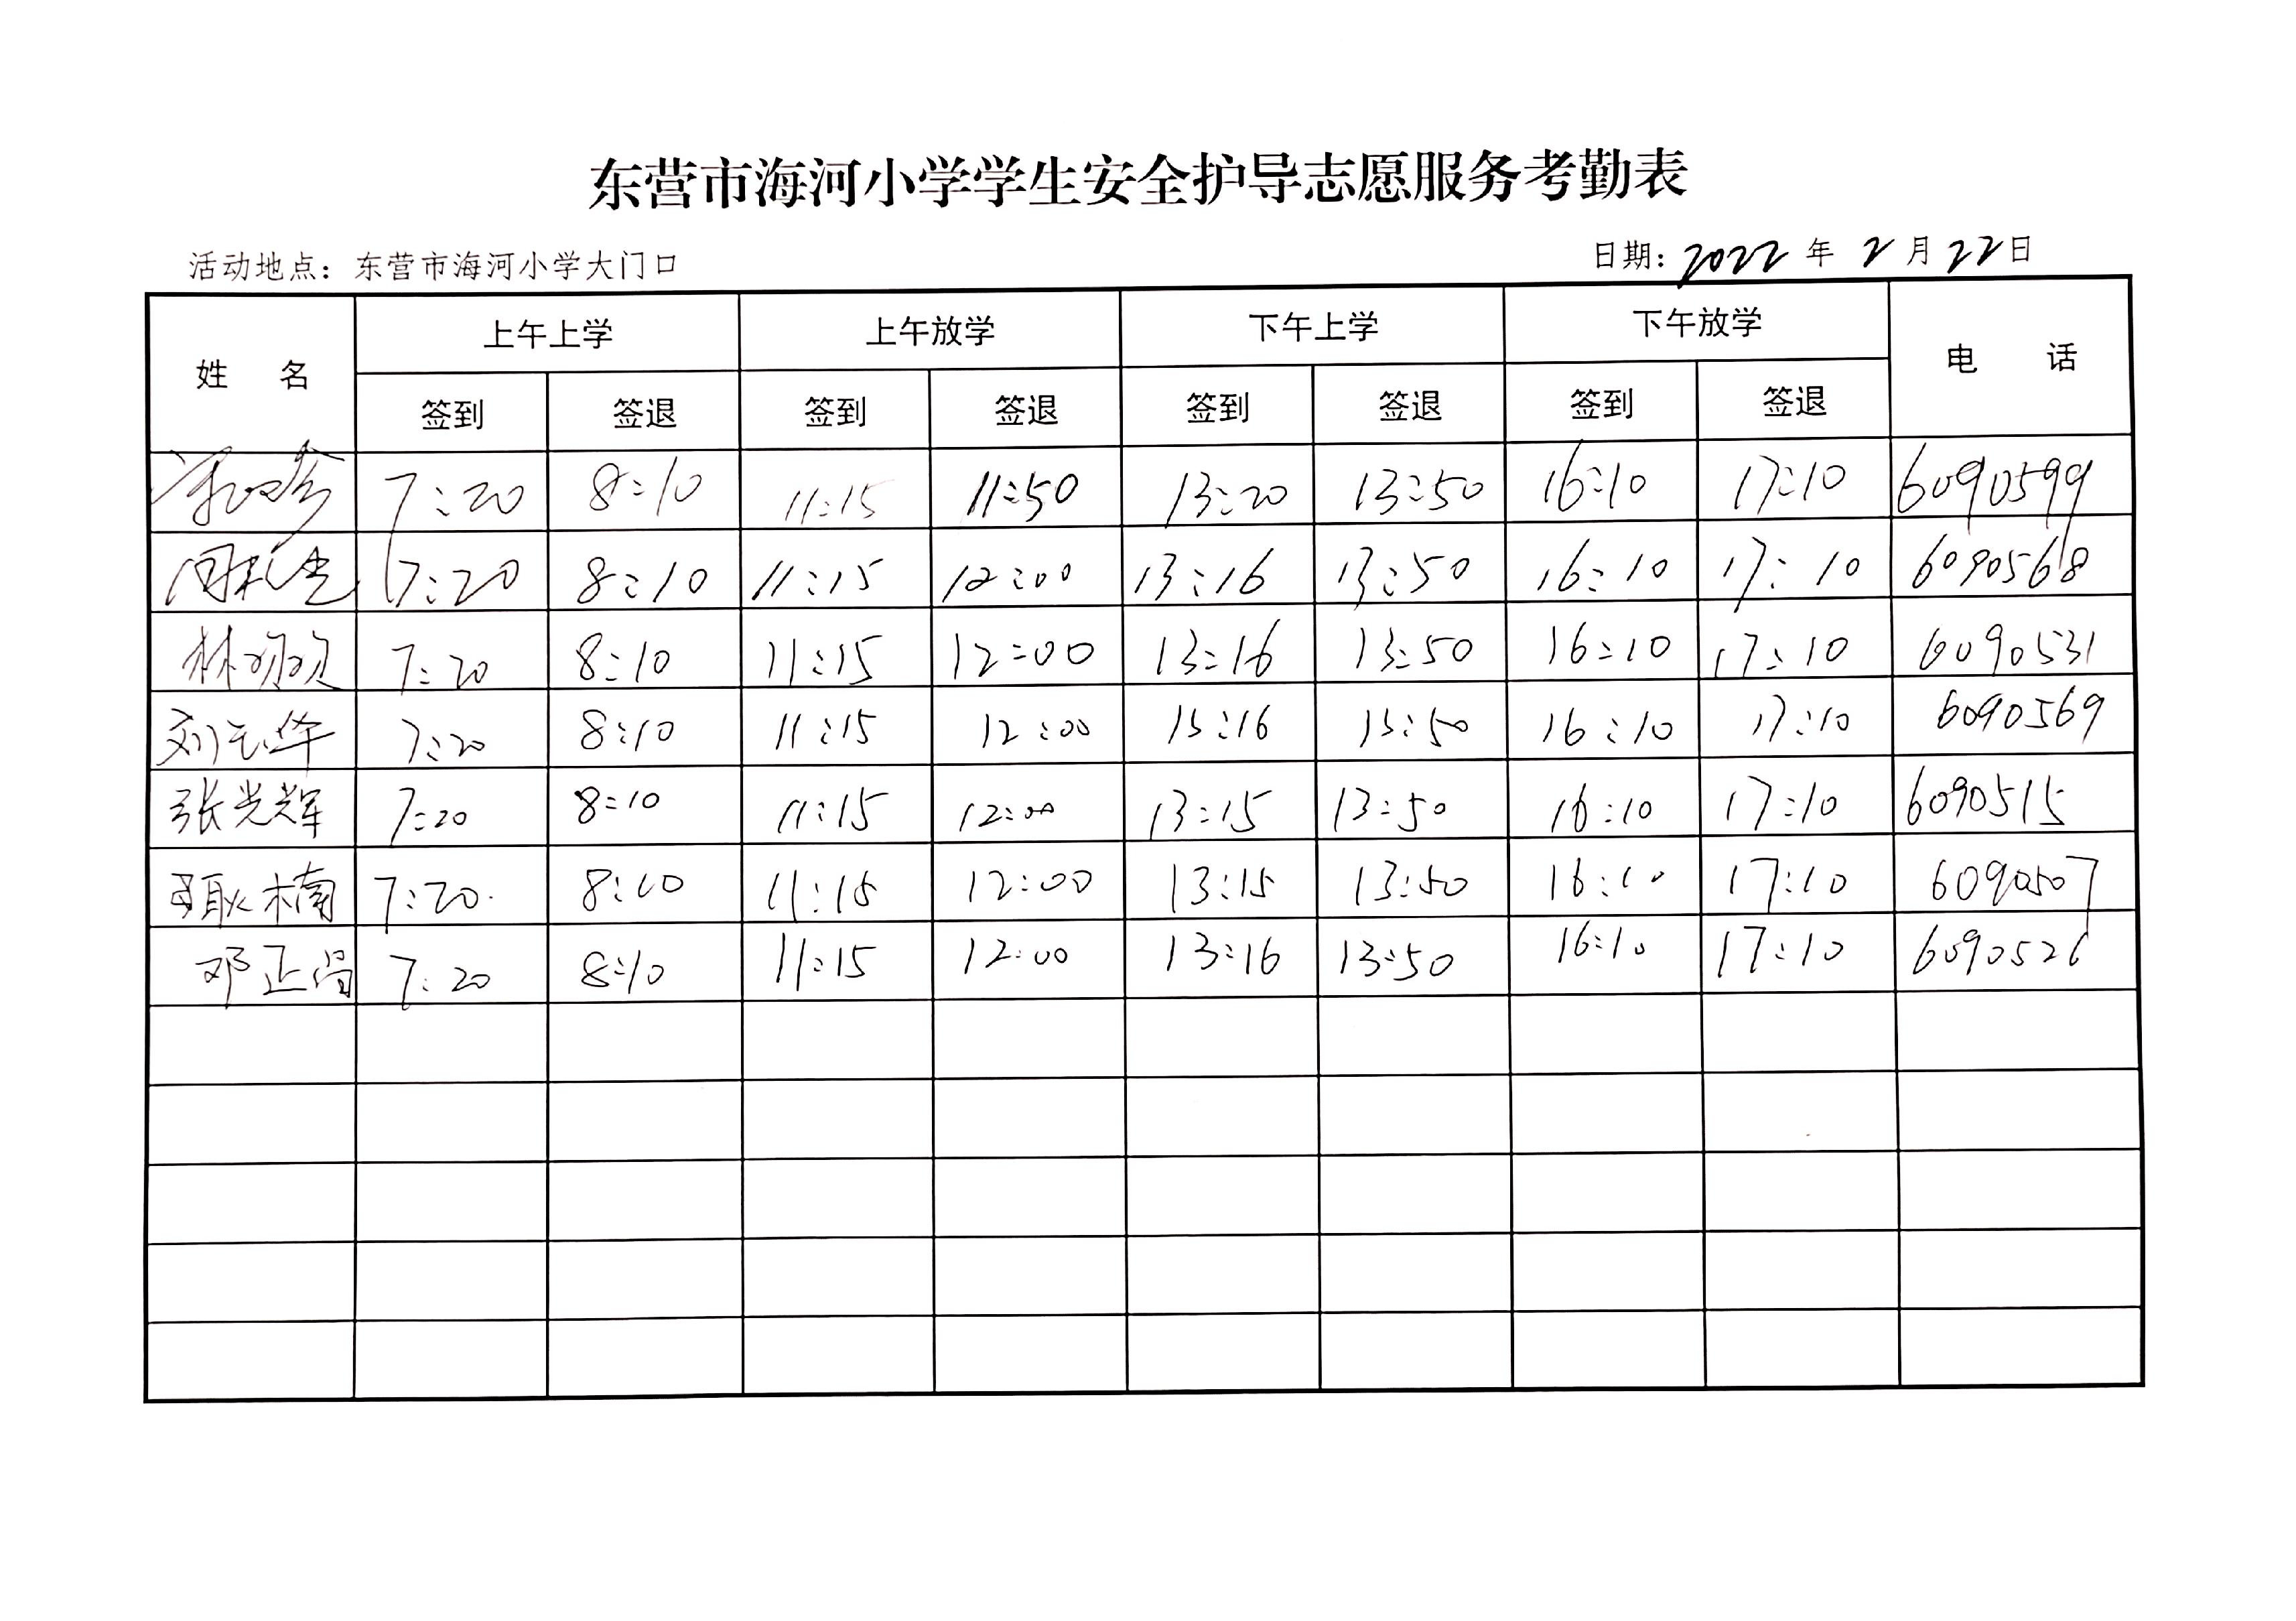 东营市海河小学学生安全护导志愿服务考勤表
活动地点：东营市海河小学大门口 日期：2022年2月22日
姓 名 上午上学 上午放学 下午上学 下午放学 电 话
签到 签退 签到 签退 签到 签退 签到 签退
7:20 8:10 11:15 11:50 13:20 13:50 16:10 17:10 6090599
7:20 8:10 11:15 12:00 13:16 13:50 16:10 17:10 6090568
7:20 8:10 11:15 12:00 13:16 13:50 16:10 17:10 6090531
刘云华 7:20 8:10 11:15 12:00 13:16 13:50 16:10 17:10 6090569
张光辉 7:20 8:10 11:15 12:00 13:15 13:50 16:10 17:10 6090515
耿楠 7:20 8:10 11:15 12:00 13:15 13:50 16:10 17:10 6090507
邓正 7:20 8:10 11:15 12:00 13:16 13:50 16:10 17:10 6090526